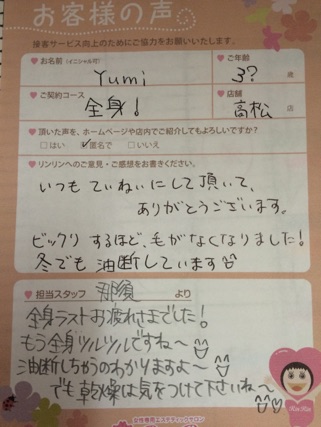 お客様の声
接客サービス向上のためにご協力をお願いいたします。
♥お名前（イニシャル可）
Yumi
♥ご年齢
3? 歳
♥ご契約コース
全身！
♥店舗
高松 店
♥頂いた声を、ホームページや店内でご紹介してもよろしいですか？
□はい ☑匿名で □いいえ
♥リンリンへのご意見・ご感想をお書きください。
いつもていねいにして頂いて、
ありがとうございます。
ビックリするほど、毛がなくなりました！
冬でも油断しています
♥担当スタッフ 那須 より
全身ラストお疲れさまでした！
もう全身ツルツルですね〜
油断しちゃうのわかりますよ〜
でも乾燥は気をつけて下さいね〜
女性専用エステティックサロン
RinRin